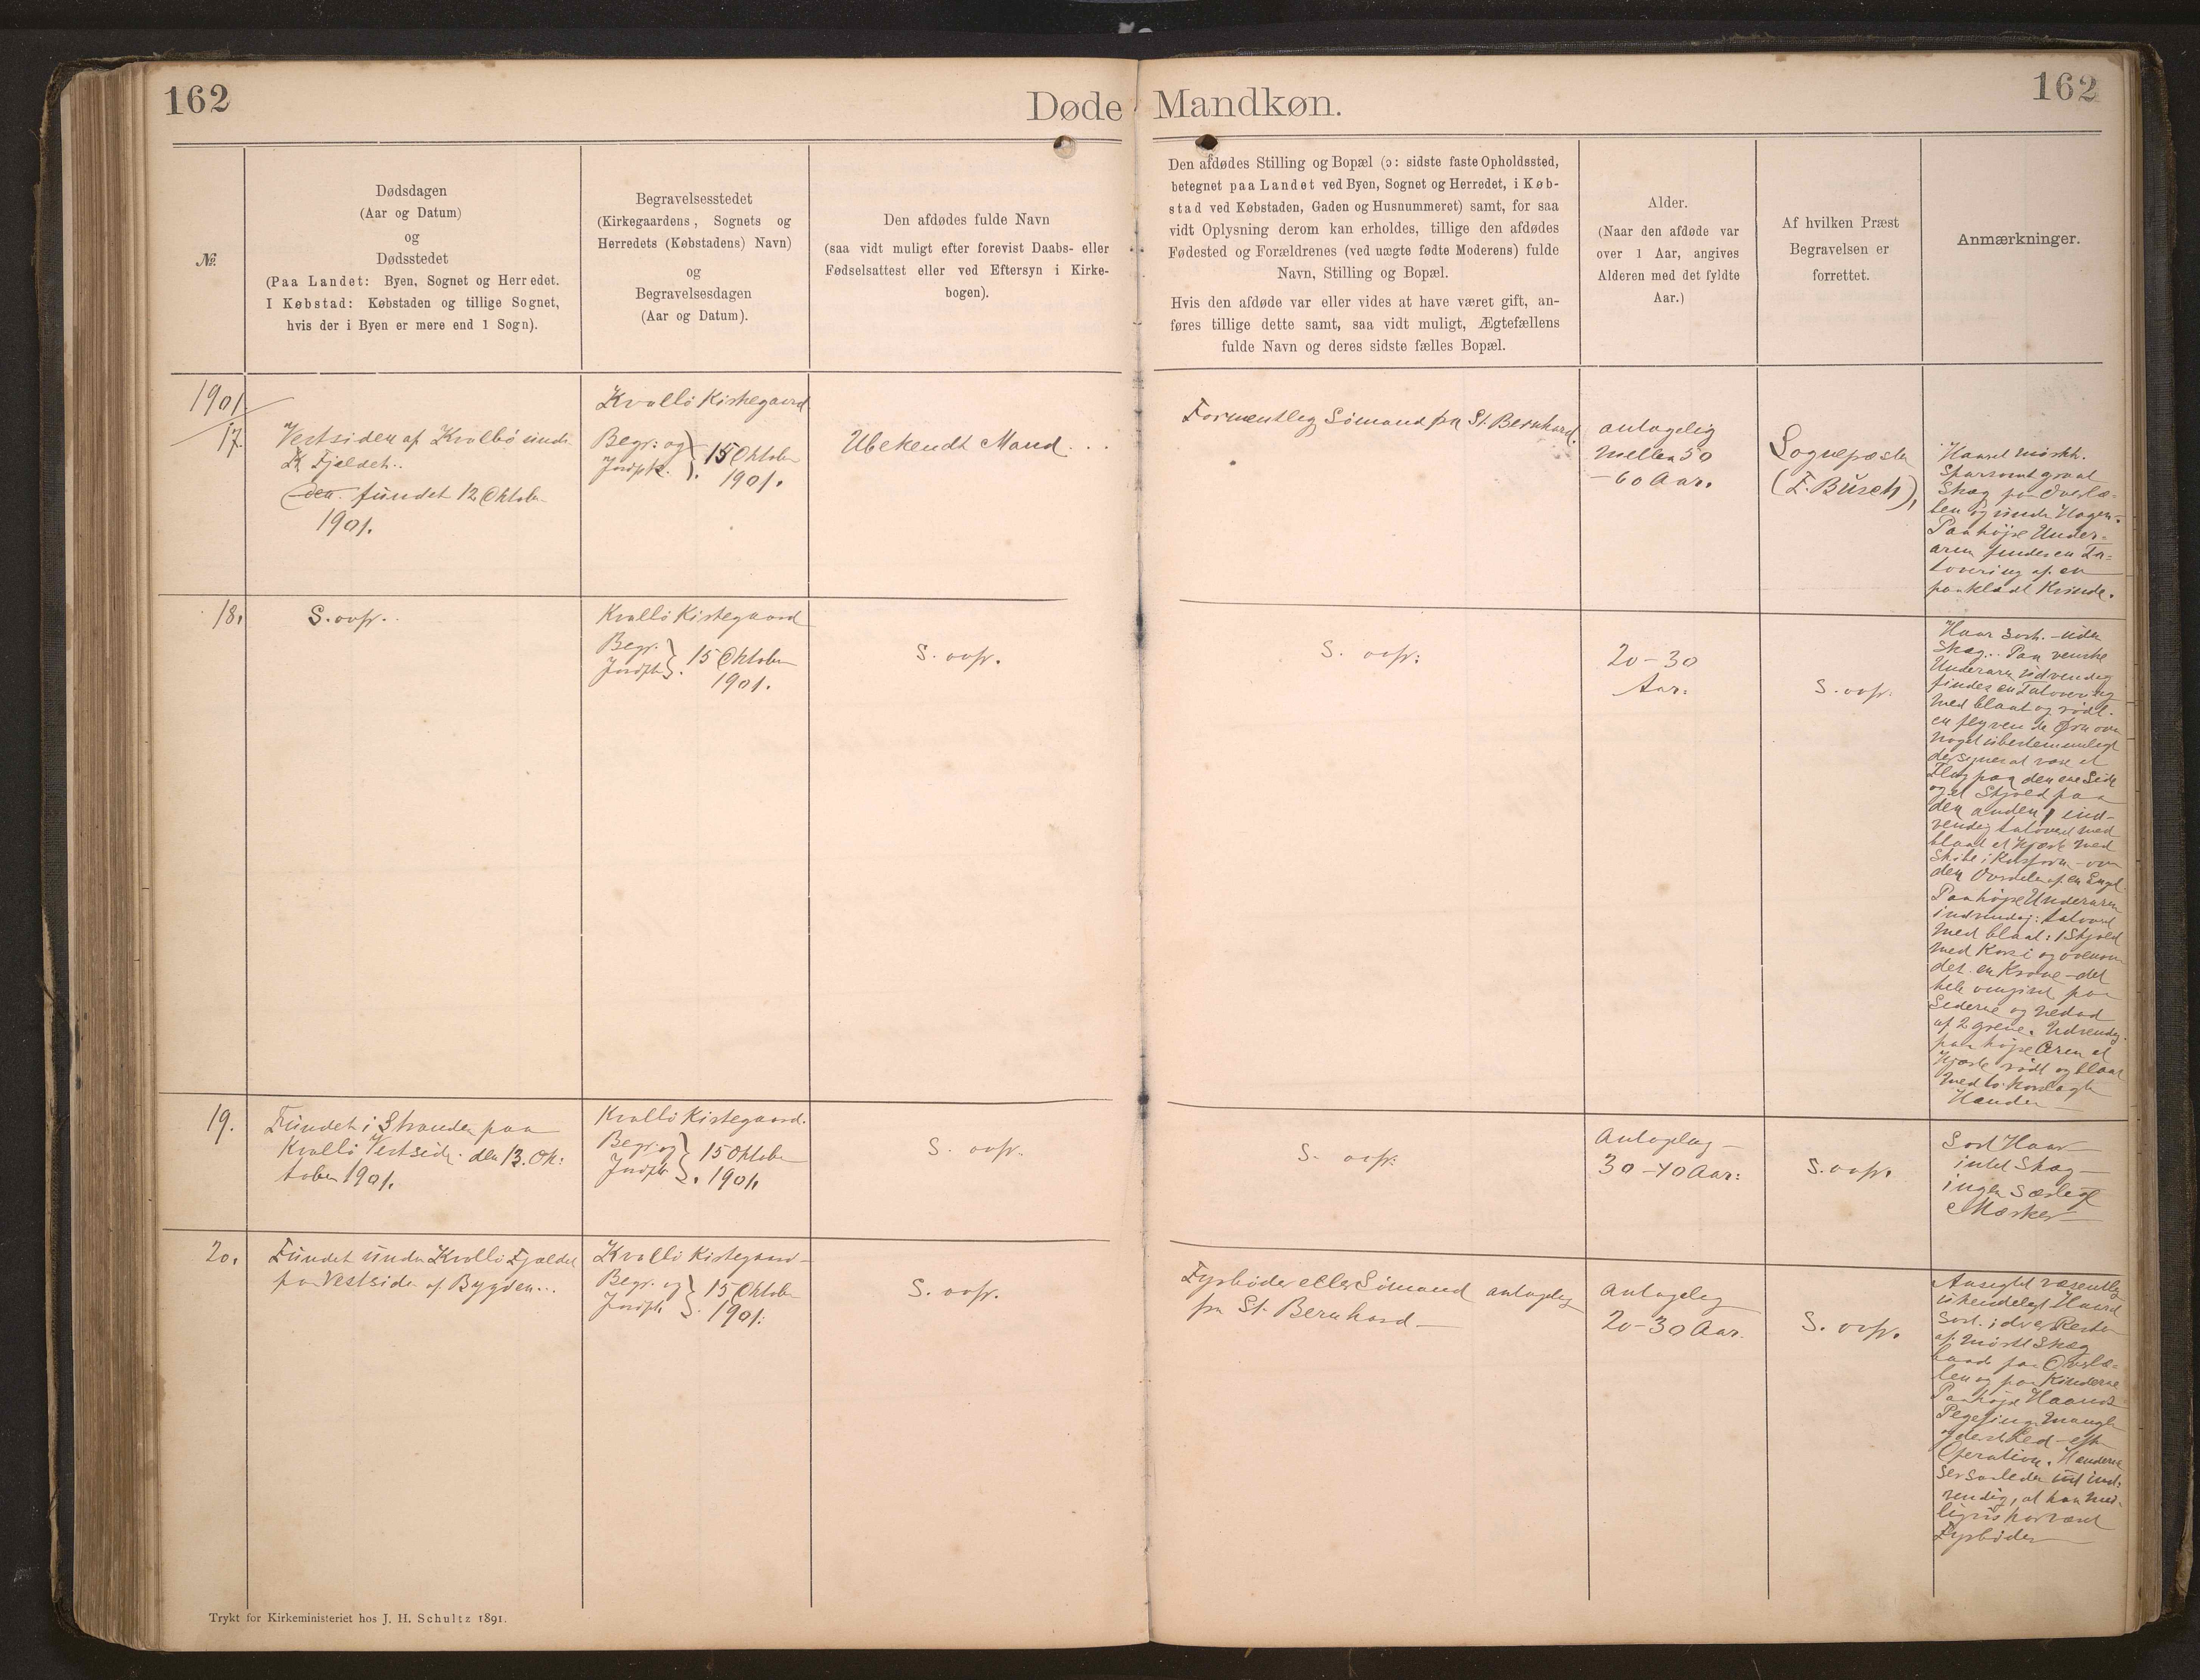 162
Døde Mandkøn.
162
№.
Dødsdagen
(Aar og Datum)
og
Dødsstedet
(Paa Landet: Byen, Sognet og Herredet.
I Købstad: Købstaden og tillige Sognet,
hvis der i Byen er mere end 1 Sogn).
Begravelsesstedet
(Kirkegaardens, Sognets og
Herredets (Købstadens) Navn)
og
Begravelsesdagen
(Aar og Datum).
Den afdødes fulde Navn
(saa vidt muligt efter forevist Daabs- eller
Fødselsattest eller ved Eftersyn i Kirke-
bogen).
Den afdødes Stilling og Bopæl (ɔ: sidste faste Opholdssted,
betegnet paa Landet ved Byen, Sognet og Herredet, i Køb-
stad ved Købstaden, Gaden og Husnummeret) samt, for saa
vidt Oplysning derom kan erholdes, tillige den afdødes
Fødested og Forældrenes (ved uægte fødte Moderens) fulde
Navn, Stilling og Bopæl.
Hvis den afdøde var eller vides at have været gift, an-
føres tillige dette samt, saa vidt muligt, Ægtefællens
fulde Navn og deres sidste fælles Bopæl.
Alder.
(Naar den afdøde var
over 1 Aar, angives
Alderen med det fyldte
Aar.)
Af hvilken Præst
Begravelsen er
forrettet.
Anmærkninger.
1901.
17.
Vestsiden af Kvalbö under
K. Fjældet..
den. fundet 12 Oktober
1901.
Kvalbö Kirkegaard
Begr: og
Jordpk. } 15 Oktober
1901.
Ubekendt Mand...
Formentlig Sömand fra St. Bernhard.
antagelig
mellem 50
-60 Aar.
Sognepræsten
(F. Busch),
Haaret mörkt.
Sparsomt graat
Skæg paa Overlæ-
ben og under Hagen.
Paa höjre Under-
arm findes en Ta-
tovering af en
paaklædt Kvinde.
18.
S. ovfr.
Kvalbö Kirkegaard
Begr.
Jordpk } 15 Oktober
1901.
S. ovfr.
S. ovfr:
20-30
Aar:
S. ovfr.
Haar sort. - uden
Skæg... Paa venstre
Underarm udvendig
findes en Tatovering
med blaat og rödt.
en flyvende Ørn over
noget ubestemmeligt
der synes at være et
Flag paa den ene Side
og et Skjold paa
den anden, ind-
vendig tatoveret med
blaat et Hjærte med
Skibe i Kors form - over
den Overdelen af en Engel.
Paa höjre Underarm
indvendig: tatoveret
med blaat: 1 Skjold
med Kors i og ovenover
det en Krone - det
hele omgivet paa
Siderne og nedad
af 2 grene. Udvendig
paa höjre Arm et
Hjærte rödt og blaat
med to korslagte
Hænder
19.
Fundet i Stranden paa
Kvalbö Vestside. den 13. Ok-
tober 1901.
Kvalbö Kirkegaard.
Begr. og
Jordpk } 15 Oktober
1901.
S. ovfr.
S. ovfr:
Antagelig
30-40 Aar:
S. ovfr.
Sort Haar
intet Skæg
ingen særlige
Mærker
20.
Fundet under Kvalbö Fjældet
paa Vestside af Bygden...
Kvalbö Kirkegaard
Begr. og
Jordpk } 15 Oktober
1901.
S. ovfr.
Fyrböder eller Sömand antagelig
fra St. Bernhard
Antagelig
20-30 Aar.
S. ovfr.
Ansigtet væsentlig
ukendeligt Haaret
sort. i dvs Rester
af mörkt Skæg
baade paa Overlæ-
ben og paa Kinderne
Paa höjre Haands
Pegefinger mangler
yderste Led - efter
Operation. Hænderne
ser saaledes ud ind-
vendig, at han mu-
ligvis har været
Fyrböder
Trykt for Kirkeministeriet hos J. H. Schultz 1891.